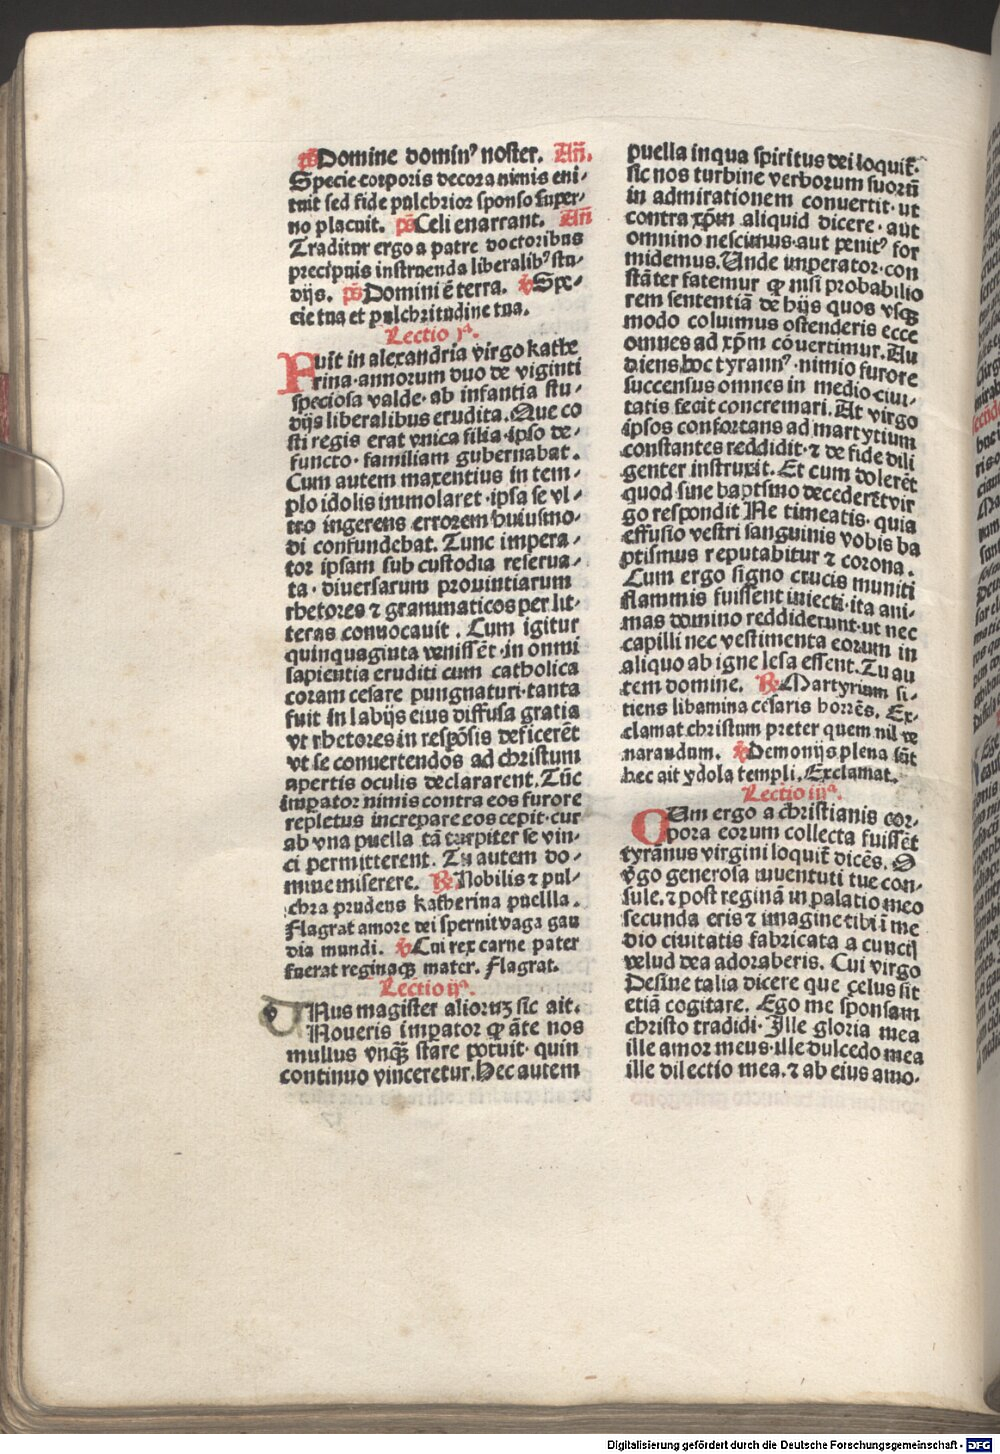 p̄s Domine domin⁹ noster. Añ.
Specie corporis decora nimis eni⸗
tuit sed fide pulchrior sponso super⸗
no placuit. p̄s Celi enarrant. Añ
Traditur ergo a patre doctoribus
precipuis instruenda liberalib⁹ stu⸗
dijs. p̄s Domini ē terra. ℣ Spe⸗
cie tua et pulchritudine tua.
Lectio jª.
Fuit in alexandria virgo kathe
rina·annorum duo de viginti
speciosa valde· ab infantia stu⸗
dijs liberalibus erudita. Que co
sti regis erat vnica filia·ipso de⸗
functo· familiam gubernabat.
Cum autem maxentius in tem⸗
plo idolis immolaret·ipsa se vl⸗
tro ingerens errorem huiusmo⸗
di confundebat. Tunc impera⸗
tor ipsam sub custodia reserua⸗
ta· diuersarum prouintiarum
rhetores ⁊ grammaticos per lit⸗
teras conuocauit. Cum igitur
quinquaginta venissēt·in omni
sapientia eruditi cum catholica
coram cesare pungnaturi·tanta
fuit in labijs eius diffusa gratia
vt rhetores in respōsis deficerēt
vt se conuertendos ad christum
apertis oculis declararent. Tūc
imꝑator nimis contra eos furore
repletus increpare eos cepit·cur
ab vna puella tā turpiter se vin⸗
ci permitterent. Tu autem do⸗
mine miserere. ℟ Nobilis ⁊ pul⸗
chra prudens katherina puellla.
Flagrat amore dei spernit vaga gau
dia mundi. ℣ Cui rex carne pater
fuerat reginaqꝫ mater. Flagrat.
Lectio ijª.
Unus magister aliorum sic ait.
Noueris imꝑator ꝙ āte nos
mullus vnqꝫ stare potuit· quin
continuo vinceretur. Hec autem
puella in qua spiritus dei loquit̄·
sic nos turbine verborum suorū
in admirationem conuertit·ut
contra xp̄m aliquid dicere·aut
omnino nescimus·aut penit⁹ for
midemus. Unde imperator·con
stāter fatemur ꝙ nisi probabilio
rem sententiā de hijs quos vsqꝫ
modo coluimus ostenderis ecce
omnes ad xp̄m cōuertimur. Au
diens hoc tyrann⁹·nimio furore
succensus omnes in medio ciui⸗
tatis fecit concremari. At virgo
ipsos confortans ad martytium
constantes reddidit·⁊ de fide dili
genter instruxit. Et cum dolerēt
quod sine baptismo decederēt vir
go respondit Ne timeatis·quia
effusio vestri sanguinis vobis ba
ptismus reputabitur ⁊ corona.
Cum ergo signo crucis muniti
flammis fuissent iniecti·ita ani⸗
mas domino reddiderunt·ut nec
capilli nec vestimenta eorum in
aliquo ab igne lesa essent. Tu au
tem domine. ℟ Martyrium si⸗
tiens libamina cesaris horrēs. Ex⸗
clamat christum preter quem nil ve
narandum. ℣ Demonijs plena sūt
hec ait ydola templi. Exclamat.
Lectio iijª.
Cum ergo a christianis cor⸗
pora eorum collecta fuissēt
tyrānus virgini loquit̄ dicēs. O
v̊go generosa iuuentuti tue con⸗
sule·⁊ post reginā in palatio meo
secunda eris ⁊ imagine tibi ī me
dio ciuitatis fabricata a cunctis
velud dea adoraberis. Cui virgo
Desine talia dicere que scelus sit
etiā cogitare. Ego me sponsam
christo tradidi· Ille gloria mea
ille amor meus·ille dulcedo mea
ille dilectio mea.⁊ ab eius amo⸗
Digitalisierung gefördert durch die Deutsche Forschungsgemeinschaft - DFG